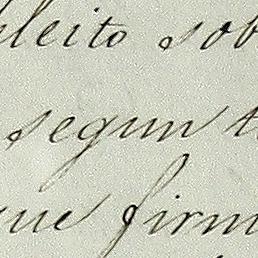 pleito sob
segun t
que firm